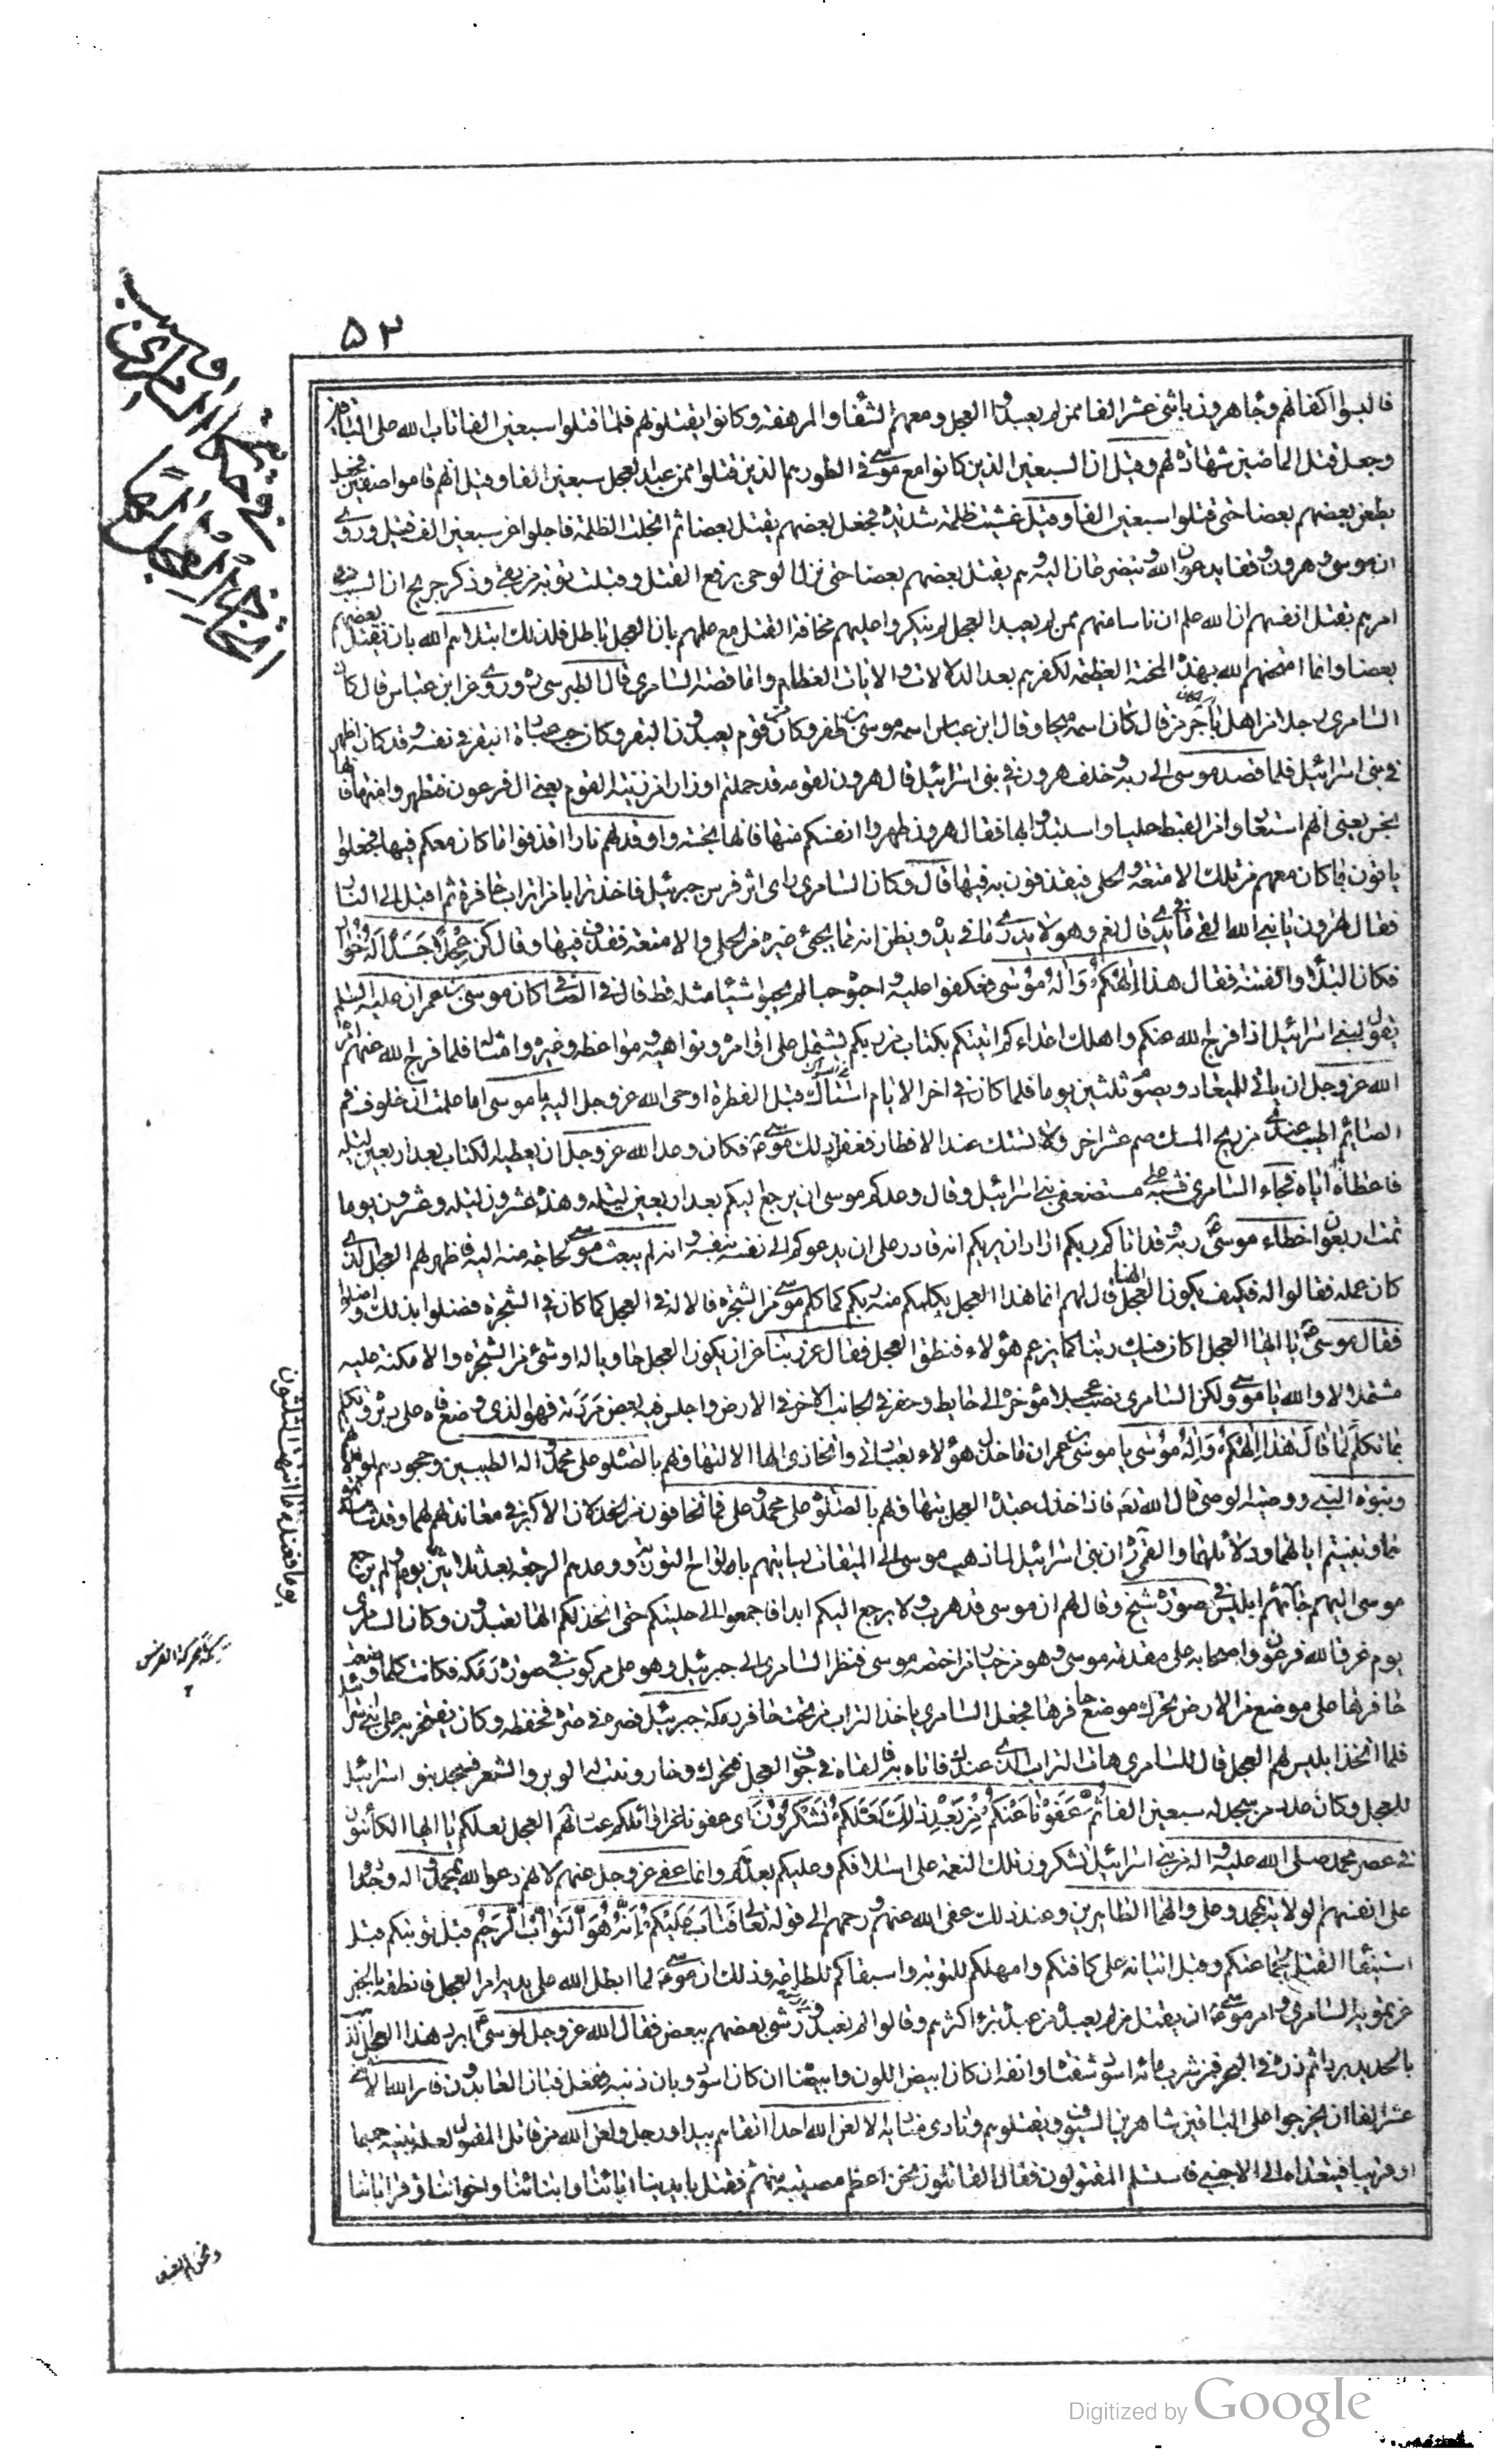 ۵۲
قد لبسوا اكفانهم وجاء هرون باثنى عشر الفا ممن لم يعبدوا العجل ومعهم الشفار المرهفة وكانوا يقتلونهم فلما قتلوا سبعين الفا تاب الله على الباقين
وجعل قتل الماضين شهادة لهم وقيل ان السبعين الذين كانوا مع موسى في الطور هم الذين قتلوا ممن عبد العجل سبعين الفا وقيل انهم قاموا صفين فجعل
يطعن بعضهم بعضا حتى قتلوا سبعين الفا وقيل غشيتهم ظلمة شديدة فجعل بعضهم يقتل بعضا ثم انجلت الظلمة فاجلوا عن سبعين الف قتيل وروى
ان موسى وهرون وقفا يدعوان الله ويتضرعان اليه وهم يقتل بعضهم بعضا حتى نزل الوحى برفع القتل وقبلت توبة من بقى وذكر جريج ان السبب في
امرهم بقتل انفسهم ان الله علم ان ناسا منهم ممن لم يعبد العجل لم ينكروا عليهم مخافة القتل مع علمهم بان العجل باطل فلذلك ابتلاهم الله بان يقتل بعضهم
بعضا وانما امتحنهم الله بهذه المحنة العظيمة لكفرهم بعد الدلالات والايات العظام واما قصة السامرى قال الطبرسى ره وروى عن ابن عباس قال كان
السامرى رجلا من اهل باجرمى قال كان اسمه ميجا وقال ابن عباس اسمه موسى بن ظفر وكان من قوم يعبدون البقر وكان حب عبادة البقر في نفسه وقد كان اظهر
في بنى اسرائيل فلما قصد موسى الى ربه وخلف هرون في بنى اسرائيل قال هرون لقومه قد حملتم اوزارا من زينة القوم يعنى ال فرعون فتطهروا منها فانها
نجس يعنى انهم استعاروا من القبط حليا واستبدوا بها فقال هرون طهروا انفسكم منها فانها نجسة واوقد لهم نارا اقذفوا ما كان معكم فيها فجعلوا
ياتون بما كان معهم من تلك الامتعة والحلى فيقذفون به فيها قال وكان السامرى راى اثر فرس جبرئيل فاخذ ترابا من تراب حافره ثم اقبل الى النار
فقال لهرون يا نبى الله القى ما في يدى قال نعم وهو لا يدرى ما في يده ويظن انه مما يجئ به غيره من الحلى والامتعة فقذف فيها وقال كن عجلا جسدا له خوار
فكان البلاء والفتنة فقال هذا الهكم واله موسى فعكفوا عليه واحبوه حبا لم يحبوا شيئا مثله قط قال في الصافى كان موسى بن عمران عليه السلم
يقول لبنى اسرائيل اذا فرج الله عنكم واهلك اعداءكم اتيتكم بكتاب من ربكم يشتمل على اوامره ونواهيه ومواعظه وعبره وامثاله فلما فرج الله عنهم امره
الله عز وجل ان ياتى للميعاد ويصوم ثلثين يوما فلما كان في اخر الايام استاك قبل الفطر اوحى الله عز وجل اليه يا موسى اما علمت ان خلوف فم
الصايم اطيب عندى من ريح المسك صم عشرا اخر ولا تستك عند الافطار ففعل ذلك موسى ع فكان وعد الله عز وجل ان يعطيه الكتاب بعد اربعين ليلة
فاعطاه اياه فجاء السامرى فشبه على مستضعفى بنى اسرائيل وقال وعدكم موسى ان يرجع اليكم بعد اربعين ليلة وهذه عشرون ليلة وعشرون يوما
تمت اربعون اخطاء موسى ع ربه قد اتاكم ربكم اراد ان يريكم انه قادر على ان يدعوكم الى نفسه بنفسه وانه لم يبعث موسى لحاجة منه اليه فاظهر لهم العجل الذى
كان عمله فقالوا له فكيف يكون العجل الهنا قال لهم انما هذا العجل يكلمكم منه ربكم كما كلم موسى من الشجرة فالاله في العجل كما كان في الشجرة فضلوا بذلك واضلوا
فقال موسى ع يا ايها العجل اكان فيك ربنا كما يزعم هؤلاء فنطق العجل فقال عز ربنا عن ان يكون العجل حاويا له او شئ من الشجرة والامكنة عليه
مشتملا لا والله يا موسى ولكن السامرى نصب عجلا مؤخره الى حايط وحفر في الجانب الاخر في الارض واجلس فيه بعض مردته فهو الذى وضع فاه على دبره وتكلم
بما تكلم لما قال هذا الهكم واله موسى يا موسى بن عمران ما خذل هؤلاء بعبادتى واتخاذى الها الا لتهاونهم بالصلوة على محمد واله الطيبين وجحودهم لموالاتهم
ونبوة النبى ووصية الوصى قال الله تع فاذا خذل عبدة العجل بتهاونهم بالصلوة على محمد وعلى فما تخافون من الخذلان الاكبر في معاندتهم لهما وقد شاهدتموهما
وتبينتم اياتهما ودلائلهما والقمى ره ان بنى اسرائيل لما ذهب موسى الى الميقات لياتيهم بالواح التورية ووعدهم الرجعة بعد ثلاثين يوما ولم يرجع
موسى اليهم جائهم ابليس في صورة شيخ وقال لهم ان موسى قد هرب ولا يرجع اليكم ابدا فاجمعوا الى حليكم حتى اتخذ لكم الها تعبدون وكان السامرى
يوم غرق الله فرعون واصحابه على مقدمة موسى وهو من خيار من اختصه موسى فنظر السامرى الى جبرئيل وهو على مركوب في صورة رمكة فكانت كلما وضعت
حافرها على موضع من الارض تحرك موضع حافرها فجعل السامرى ياخذ التراب من تحت حافر رمكة جبرئيل فصره في صرة فحفظه وكان يفتخر به على بنى اسرائيل
فلما اتخذ ابليس لهم العجل قال للسامرى هات التراب الذى عندك فاتاه به فالقاه في جوف العجل فتحرك وخار ونبت له الوبر والشعر فسجد بنو اسرائيل
للعجل وكان عدد من سجد له سبعين الفا ثم عفونا عنكم من بعد ذلك لعلكم تشكرون اى عفونا عن اوائلكم عبادتهم العجل لعلكم يا ايها الكائنون
في عصر محمد صلى الله عليه واله من بنى اسرائيل تشكرون تلك النعمة على اسلافكم وعليكم بعدهم وانما عفى عز وجل عنهم لانهم دعوا الله بمحمد واله وجددوا
على انفسهم الولاية بمحمد وعلى والهما الطاهرين وعند ذلك عفى الله عنهم ورحمهم الى قوله تعالى فتاب عليكم انه هو التواب الرحيم قبل توبتكم قبل
استيفاء القتل لجماعتكم وقبل اتيانه على كافتكم وامهلكم للتوبة واستبقاكم للطاعة وذلك ان موسى ع لما ابطل الله على يديه امر العجل فانطقه بالخبر
عن تمويه السامرى وامر موسى ع ان يقتل من لم يعبده من عبده تبرء اكثرهم وقالوا لم نعبد ووشى بعضهم ببعض فقال الله عز وجل لموسى ع ابرد هذا العجل الذهب
بالحديد بردا ثم ذره في البحر فمن شرب مائه اسود شفتاه وانفه ان كان ابيض اللون وابيضتا ان كان اسود وبان ذنبه ففعل فبان العابدون فامر الله الاثنى
عشر الفا ان يخرجوا على الباقين شاهرين السيوف ويقتلوهم ونادى مناديه الا لعن الله احدا اتقاهم بيد او رجل ولعن الله من تامل المقتول لعله تبينه حميما
او قريبا فيتعداه الى الاجنبى فاستسلم المقتولون فقال القاتلون نحن اعظم مصيبة منهم نقتل بايدينا ابائنا وابنائنا واخواننا وقراباتنا
يوما فعند ما انتهت الثلثون
ونحن لم نعبد